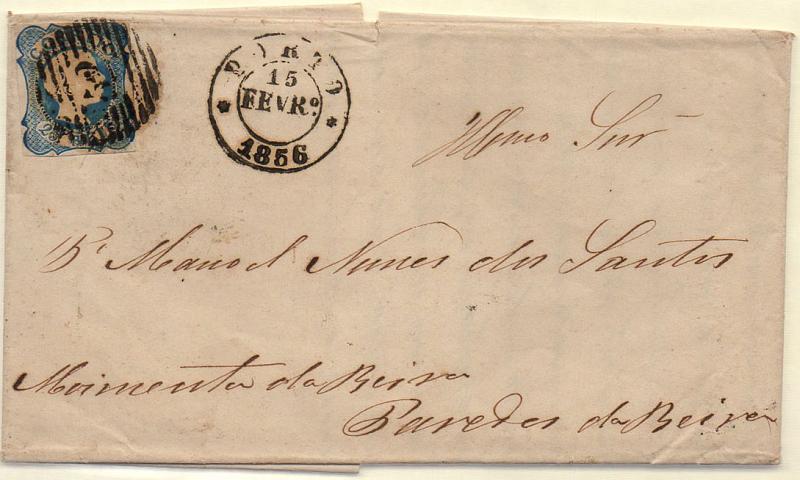 CORREIO
25 REIS
PORTO
15
FEVRº
1856
Illmo Snr
Pe Manoel Nunes dos Santos
Moimenta da Beira
Paredes da Beira